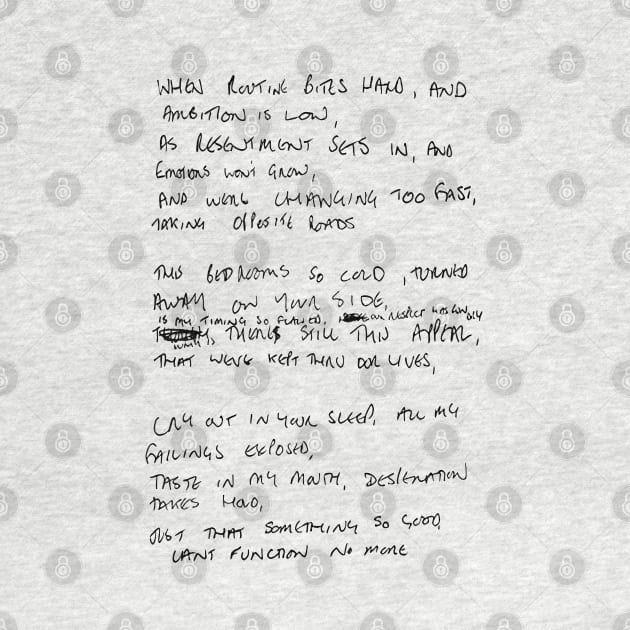 WHEN ROUTINE BITES HARD, AND
AMBITION IS LOW,
AS RESENTMENT SETS IN, AND
EMOTIONS WON'T GROW,
AND WERE CHANGING TOO FAST,
TAKING OPPOSITE ROADS
THIS BEDROOMS SO COLD, TURNED
AWAY ON YOUR SIDE,
IS MY TIMING SO FLAWED, OUR RESPECT
THERES STILL THIS APPEAL,
THAT WEVE KEPT THRU OUR LIVES,
CRY OUT IN YOUR SLEEP, ALL MY
FAILINGS EXPOSED,
TASTE IN MY MOUTH, DESPERATION
TAKES HOLD,
JUST THAT SOMETHING SO GOOD,
CANT FUNCTION NO MORE